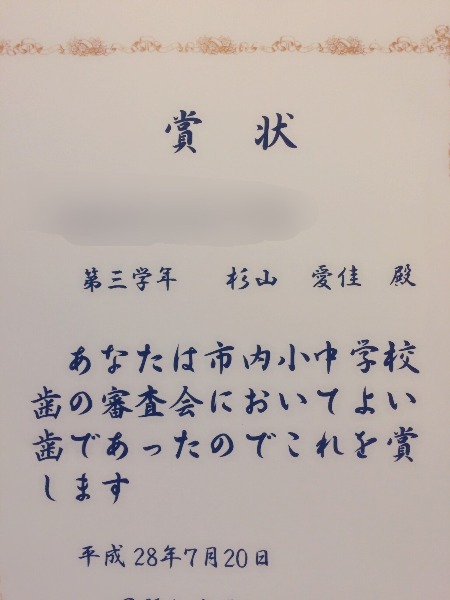 賞状
第三学年 杉山 愛佳 殿
あなたは市内小中学校
歯の審査会においてよい
歯であったのでこれを賞
します
平成28年7月20日